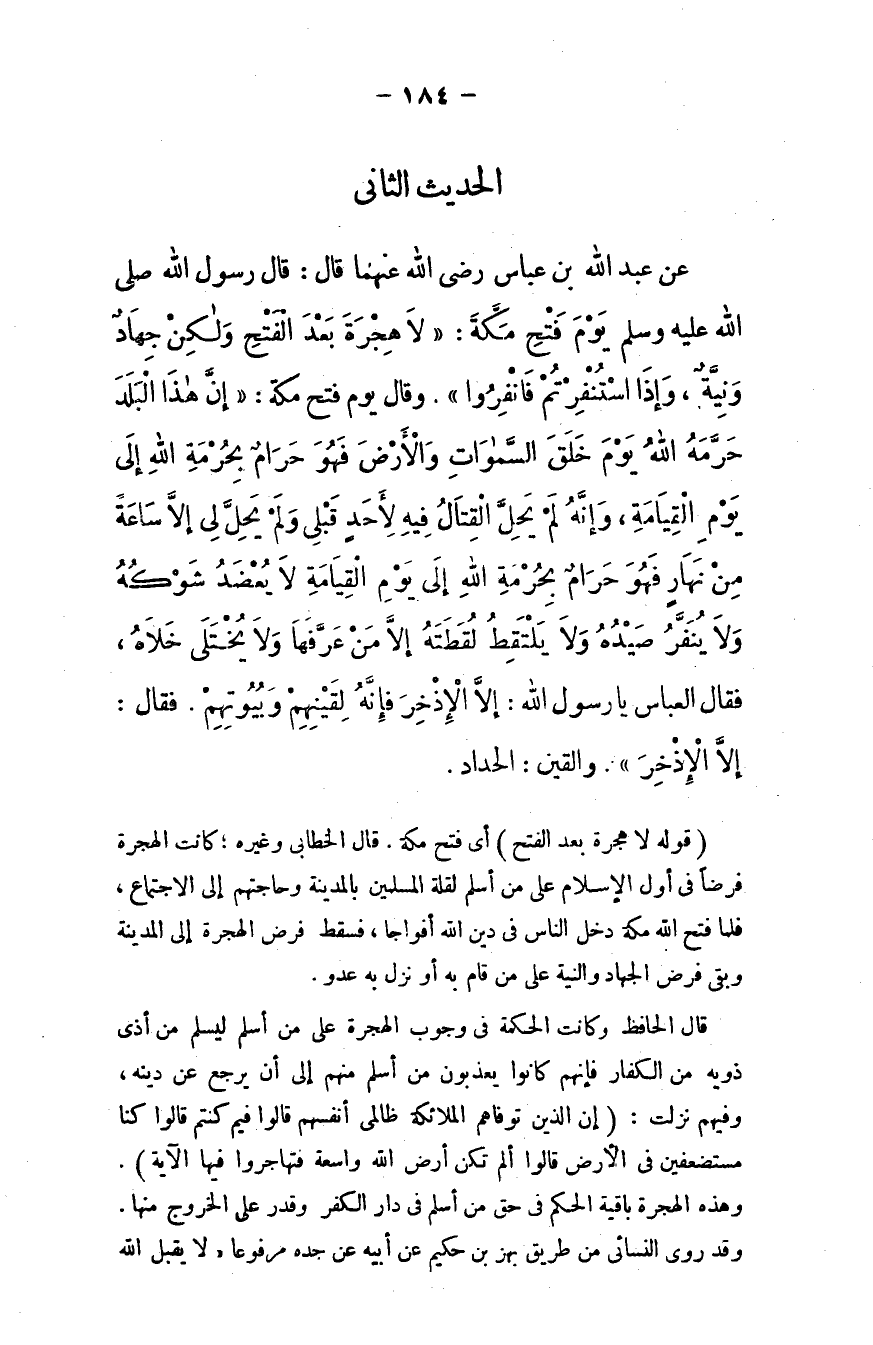 - ١٨٤ -
الحديث الثانى
عن عبد الله بن عباس رضى الله عنهما قال : قال رسول الله صلى
الله عليه وسلم يَوْمَ فَتْحِ مَكَّةَ : « لاَ هِجْرَةَ بَعْدَ الْفَتْحِ وَلٰكِنْ جِهَادٌ
وَنِيَّةٌ ، وَإِذَا اسْتُنْفِرْتُمْ فَانْفِرُوا » . وقال يوم فتح مكة : « إِنَّ هٰذَا الْبَلَدَ
حَرَّمَهُ اللهُ يَوْمَ خَلَقَ السَّمٰوَاتِ وَالْأَرْضَ فَهُوَ حَرَامٌ بِحُرْمَةِ اللهِ إِلَى
يَوْمِ الْقِيَامَةِ ، وَإِنَّهُ لَمْ يَحِلَّ الْقِتَالُ فِيهِ لِأَحَدٍ قَبْلِى وَلَمْ يَحِلَّ لِى إِلاَّ سَاعَةً
مِنْ نَهَارٍ فَهُوَ حَرَامٌ بِحُرْمَةِ اللهِ إِلَى يَوْمِ الْقِيَامَةِ لاَ يُعْضَدُ شَوْكُهُ
وَلاَ يُنَفَّرُ صَيْدُهُ وَلاَ يَلْتَقِطُ لُقَطَتَهُ إِلاَّ مَنْ عَرَّفَهَا وَلاَ يُخْتَلَى خَلاَهُ ،
فقال العباس يا رسول الله : إِلاَّ الْإِذْخِرَ فَإِنَّهُ لِقَيْنِهِمْ وَبُيُوتِهِمْ . فقال :
إِلاَّ الْإِذْخِرَ » . والقين : الحداد .
( قوله لا هجرة بعد الفتح ) أى فتح مكة . قال الخطابى وغيره : كانت الهجرة
فرضاً فى أول الإسلام على من أسلم لقلة المسلمين بالمدينة وحاجتهم إلى الاجتماع ،
فلما فتح الله مكة دخل الناس فى دين الله أفواجا ، فسقط فرض الهجرة إلى المدينة
وبقى فرض الجهاد والنية على من قام به أو نزل به عدو .
قال الحافظ وكانت الحكمة فى وجوب الهجرة على من أسلم ليسلم من أذى
ذويه من الكفار فإنهم كانوا يعذبون من أسلم منهم إلى أن يرجع عن دينه ،
وفيهم نزلت : ( إن الذين توفاهم الملائكة ظالمى أنفسهم قالوا فيم كنتم قالوا كنا
مستضعفين فى الأرض قالوا ألم تكن أرض الله واسعة فتهاجروا فيها الآية ) .
وهذه الهجرة باقية الحكم فى حق من أسلم فى دار الكفر وقدر على الخروج منها .
وقد روى النسائى من طريق بهز بن حكيم عن أبيه عن جده مرفوعا « لا يقبل الله